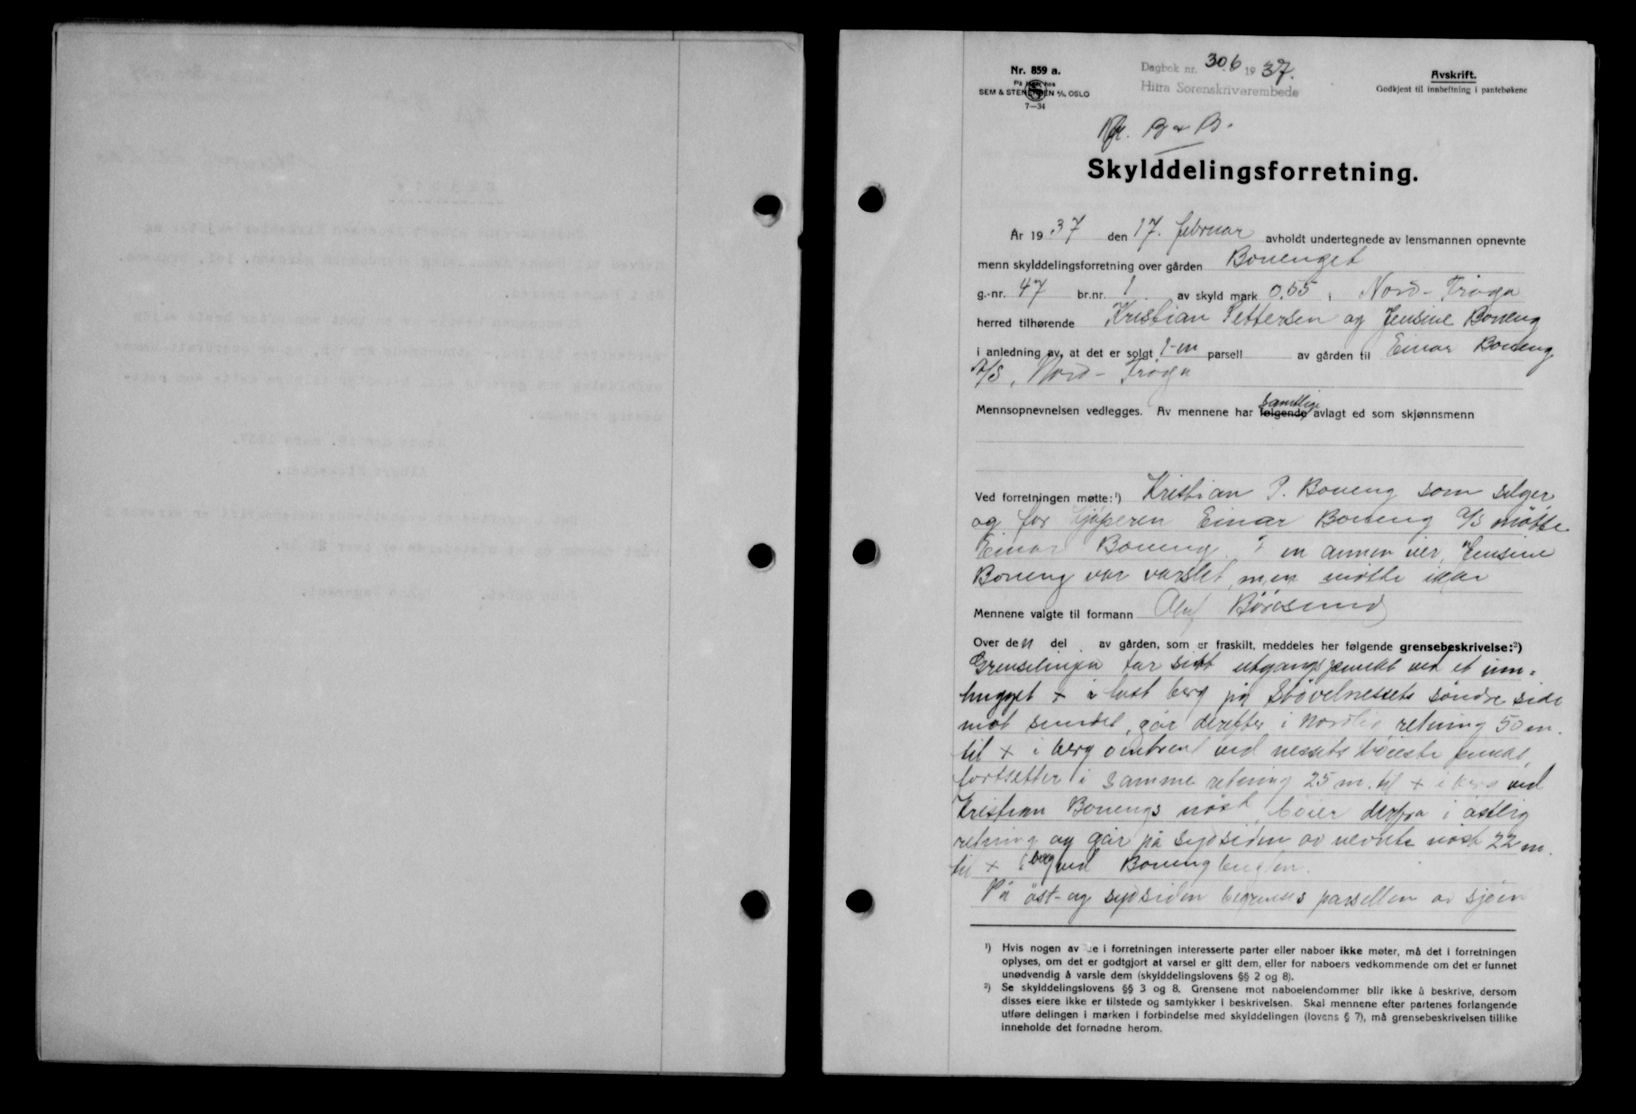 Nr. 859 a.
På lager hos
SEM & STENERSEN A/S, OSLO
7—34
Dagbok nr. 306 1937.
Hitra Sorenskriverembede
Avskrift.
Godkjent til innheftning i pantebøkene
Skylddelingsforretning.
År 1937 den 17. februar avholdt undertegnede av lensmannen opnevnte
menn skylddelingsforretning over gården Bonenget
g.-nr. 47 br.nr. 1 av skyld mark 0,55 i Nord-Frøya
herred tilhørende Kristian Pettersen og Jensine Boneng
i anledning av, at det er solgt 1-en parsell av gården til Einar Boneng
A/S, Nord-Frøya
Mennsopnevnelsen vedlegges. Av mennene har følgende samtlige avlagt ed som skjønnsmenn
Ved forretningen møtte:¹) Kristian P. Boneng som selger
og for kjøperen Einar Boneng A/S møtte
Einar Boneng. en annen eier, Jensine
Boneng var varslet, men møtte ikke
Mennene valgte til formann Olaf Børesund
Over den del av gården, som er fraskilt, meddeles her følgende grensebeskrivelse:²)
Grenselinjen tar sitt utgangspunkt ved et inn-
hugget + i fast berg på Støvelnessets søndre side
mot sundet, går derefter i nordlig retning 50 m.
til + i berg omtrent ved nessets høieste punkt,
fortsetter i samme retning 25 m. til + i berg ved
Kristian Bonengs nøst, bøier derfra i østlig
retning og går på sydsiden av nevnte nøst 22 m.
til + i berg ved Bonengbugten.
På øst- og sydsiden begrenses parsellen av sjøen
¹) Hvis nogen av de i forretningen interesserte parter eller naboer ikke møter, må det i forretningen
oplyses, om det er godtgjort at varsel er gitt dem, eller for naboers vedkommende om det er funnet
unødvendig å varsle dem (skylddelingslovens §§ 2 og 8).
²) Se skylddelingslovens §§ 3 og 8. Grensene mot naboeiendommer blir ikke å beskrive, dersom
disses eiere ikke er tilstede og samtykker i beskrivelsen. Skal mennene efter partenes forlangende
utføre delingen i marken i forbindelse med skylddelingen (lovens § 7), må grensebeskrivelsen tillike
inneholde det fornødne herom.